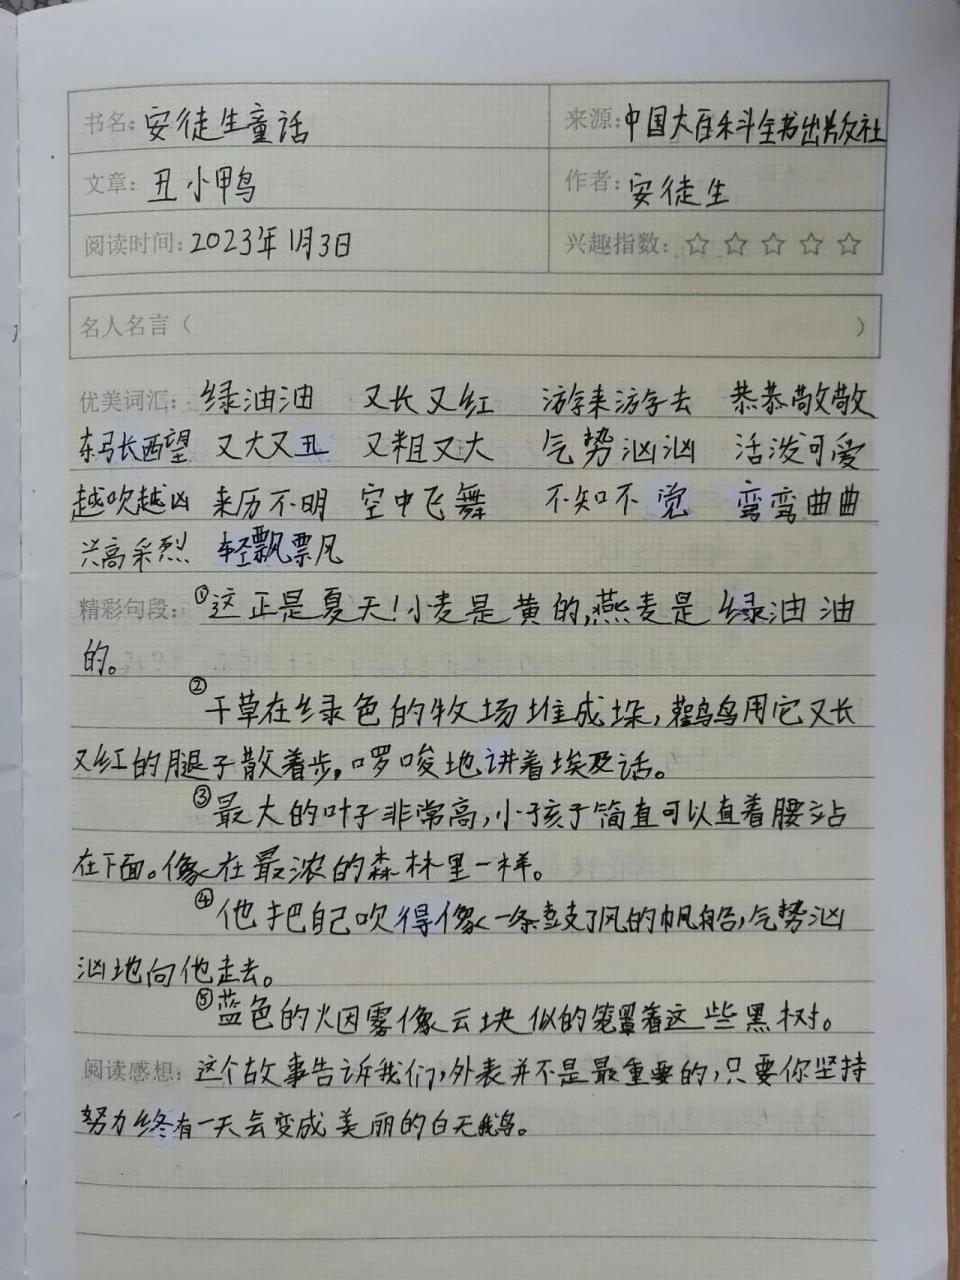 书名: 安徒生童话 来源: 中国大百科全书出版社
文章: 丑小鸭 作者: 安徒生
阅读时间: 2023年1月3日 兴趣指数: ☆ ☆ ☆ ☆ ☆
名人名言( )
优美词汇: 绿油油 又长又红 游来游去 恭恭敬敬
东张西望 又大又丑 又粗又大 气势汹汹 活泼可爱
越吹越凶 来历不明 空中飞舞 不知不觉 弯弯曲曲
兴高采烈 轻飘飘
精彩句段: ①这正是夏天!小麦是黄的,燕麦是绿油油
的。
②干草在绿色的牧场堆成垛,鹳鸟用它又长
又红的腿子散着步,啰唆地讲着埃及话。
③最大的叶子非常高,小孩子简直可以直着腰站
在下面。像在最浓的森林里一样。
④他把自己吹得像一条鼓了风的帆船,气势汹
汹地向他走去。
⑤蓝色的烟雾像云块似的笼罩着这些黑树。
阅读感想: 这个故事告诉我们,外表并不是最重要的,只要你坚持
努力终有一天会变成美丽的白天鹅。